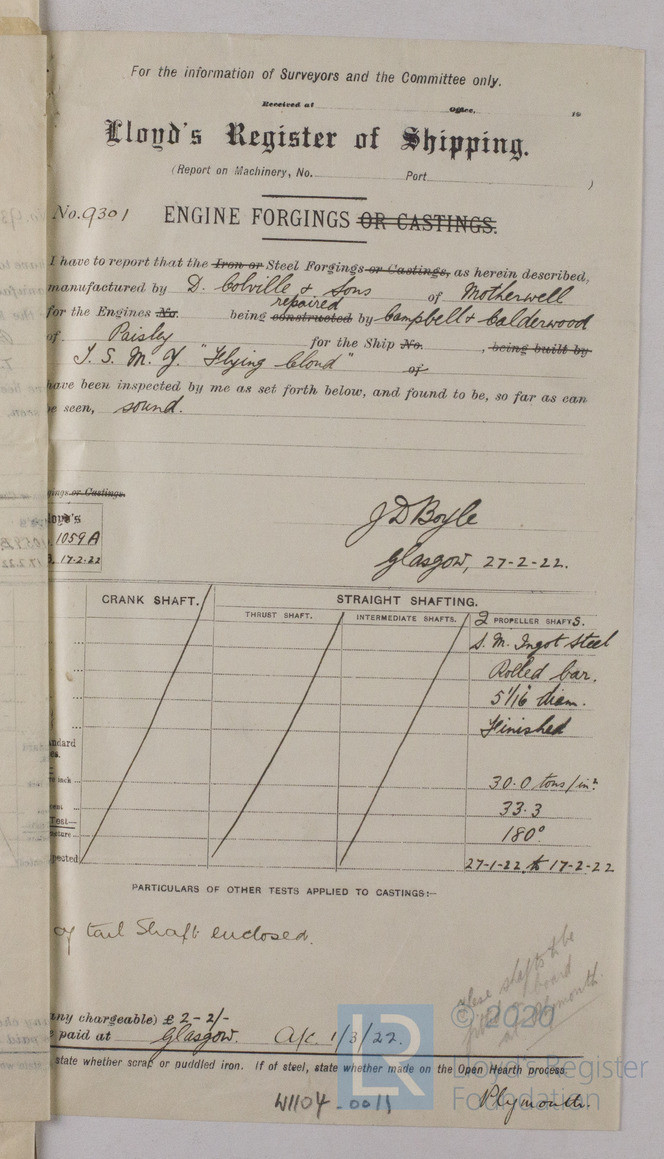 For the information of Surveyors and the Committee only.
Received at Office, 19
Lloyd's Register of Shipping.
(Report on Machinery, No. Port )
No. 9301 ENGINE FORGINGS OR CASTINGS.
I have to report that the Iron or Steel Forgings or Castings, as herein described,
manufactured by D. Colville & Sons of Motherwell
repaired
for the Engines No. being constructed by Campbell & Calderwood
of Paisley for the Ship No. , being built by
T. S. M. Y. "Flying Cloud" of
have been inspected by me as set forth below, and found to be, so far as can
be seen, sound.
ings or Castings.
loyd's
1059A
17-2-22
J D Boyle
Glasgow, 27-2-22.
CRANK SHAFT. STRAIGHT SHAFTING.
THRUST SHAFT. INTERMEDIATE SHAFTS. 2 PROPELLER SHAFTS.
S. M. Ingot Steel
Rolled bar.
5 1/16 diam.
Finished
ndard
es.
inch 30.0 tons/in.²
ent 33.3
Test—
cture 180°
pected 27-1-22 to 17-2-22
PARTICULARS OF OTHER TESTS APPLIED TO CASTINGS:—
of tail Shaft enclosed.
these shafts to be
board
at Plymouth.
any chargeable) £ 2-2/-
paid at Glasgow. A/c. 1/3/22.
state whether scrap or puddled iron. If of steel, state whether made on the Open Hearth process
W1104-0011 Plymouth.
LR
© 2020
Lloyd's Register
Foundation